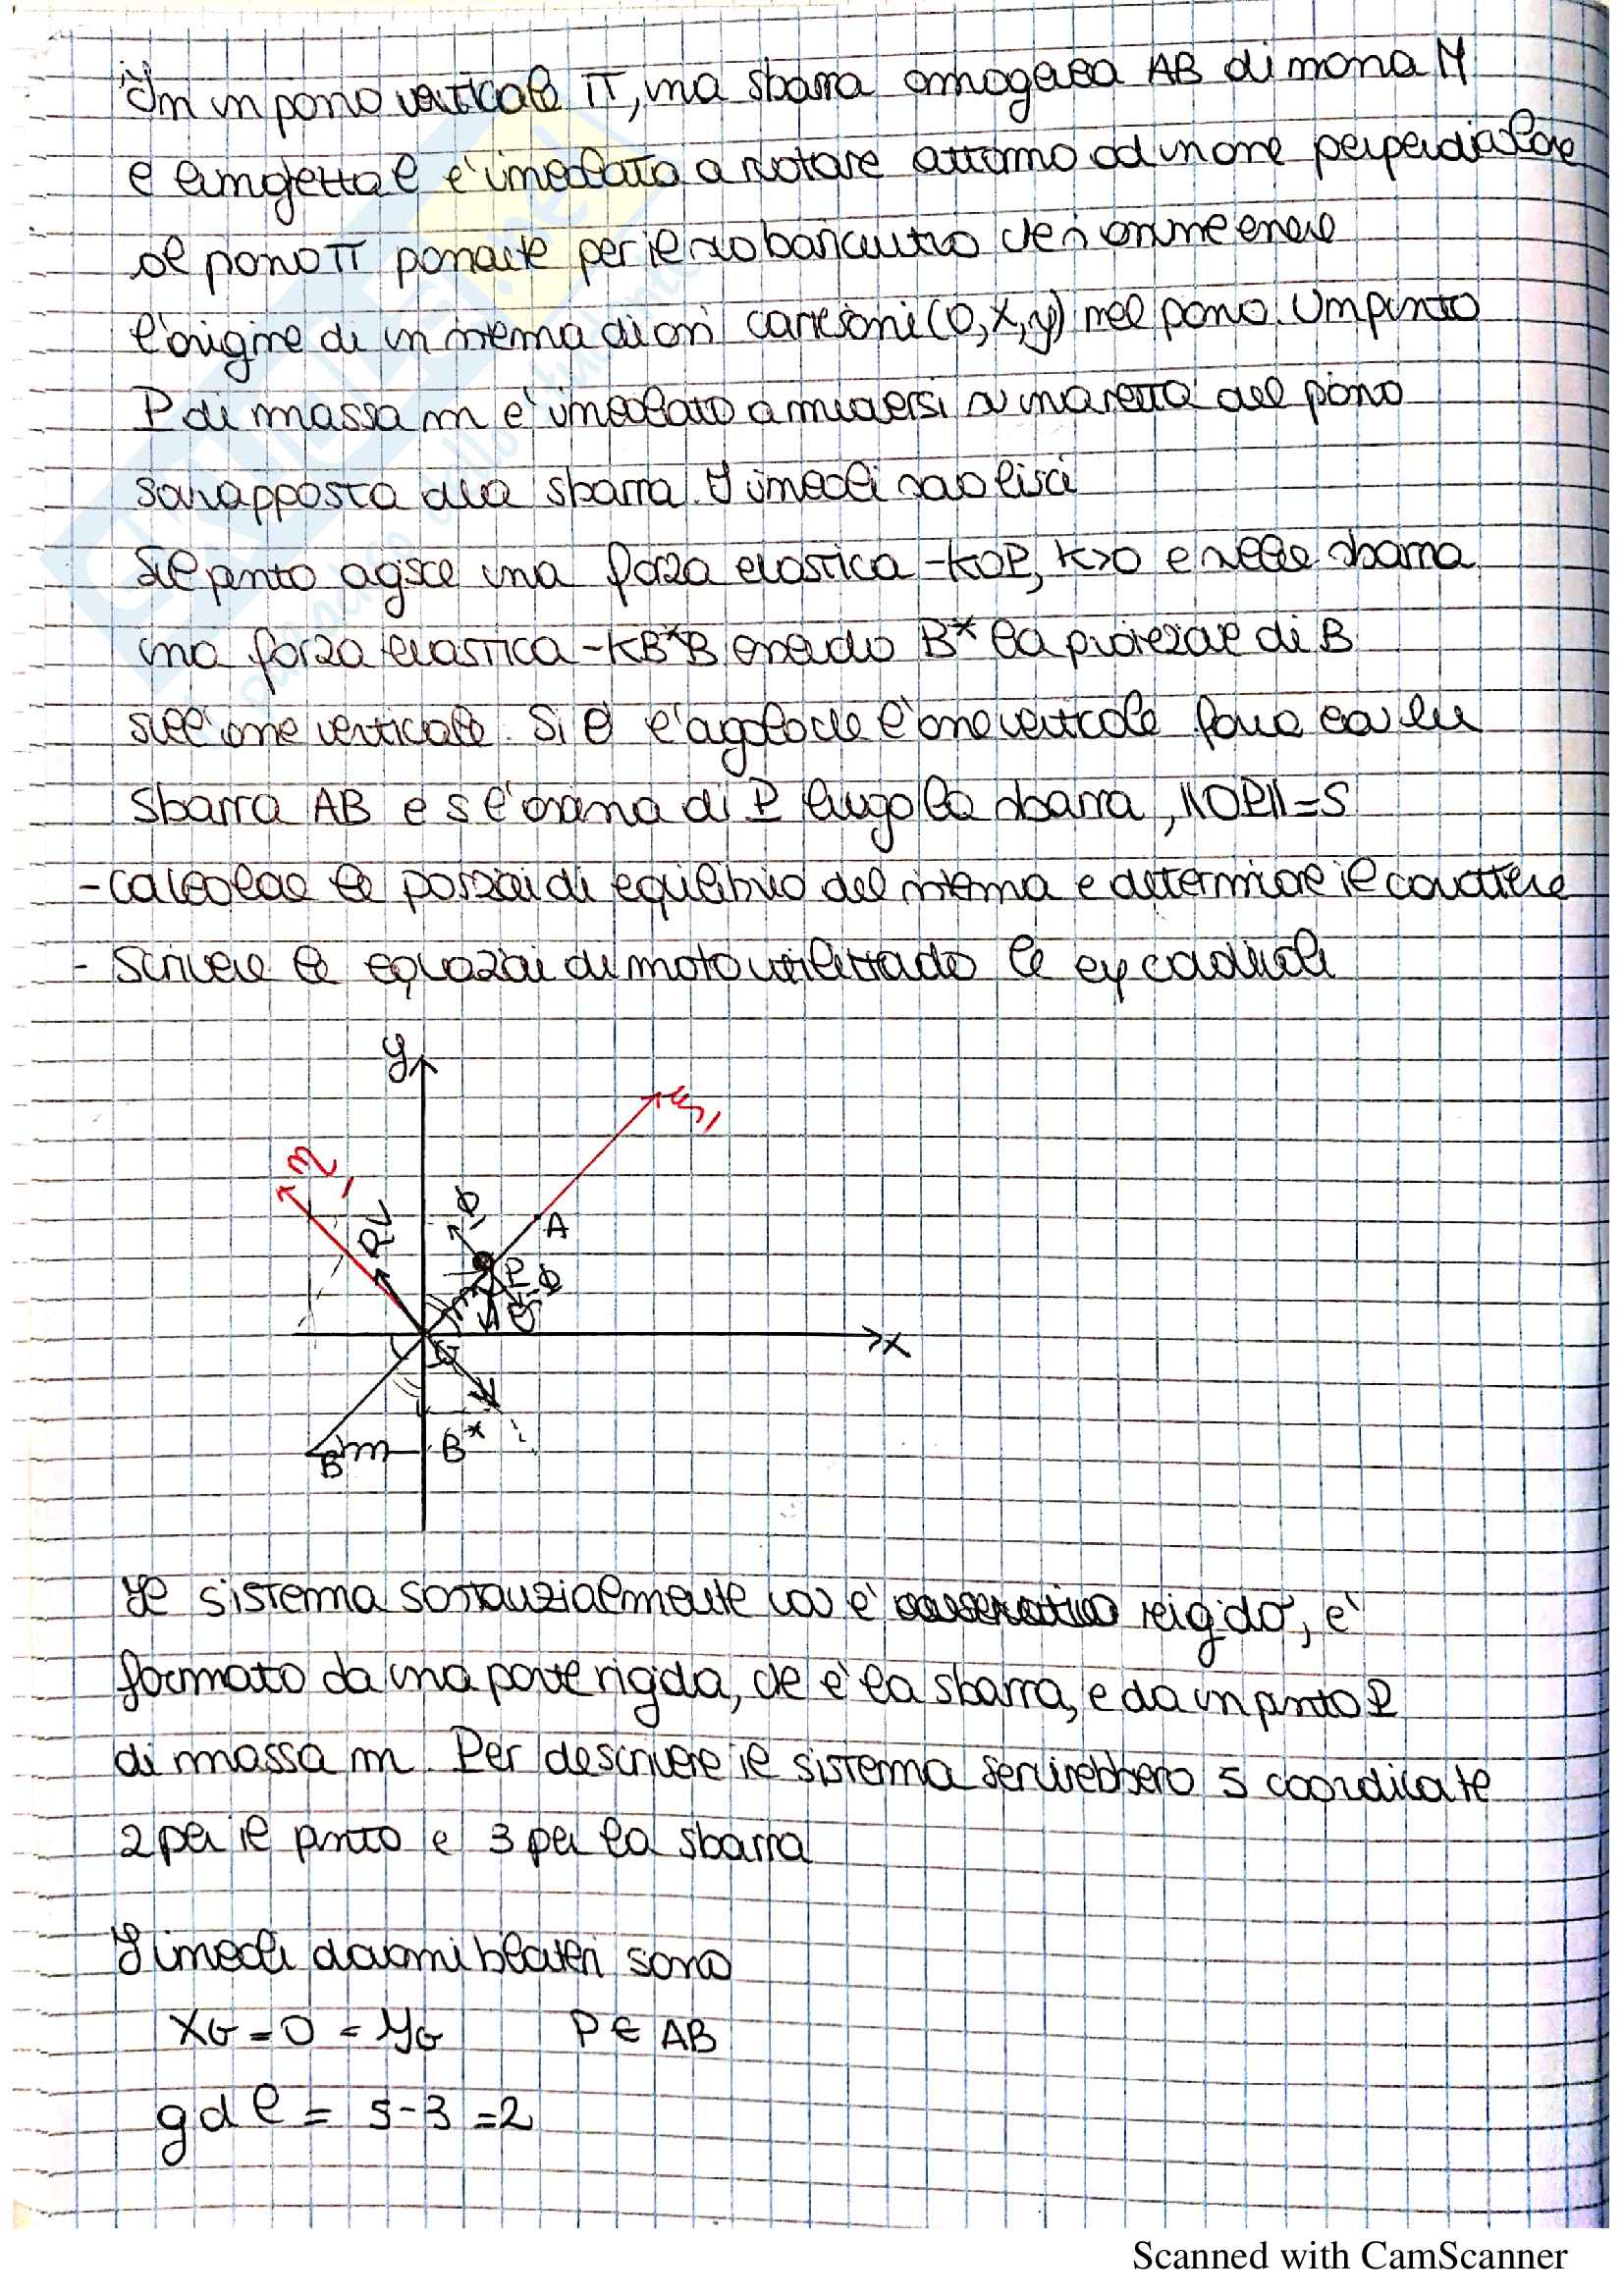 In un piano verticale π, una sbarra omogenea AB di massa M
e lunghezza l è vincolata a ruotare attorno ad un asse perpendicolare
al piano π passante per il suo baricentro che si assume essere
l'origine di un sistema di assi cartesiani (O, x, y) nel piano. Un punto
P di massa m è vincolato a muoversi su una retta del piano
sovrapposta alla sbarra. I vincoli sono lisci
Sul punto agisce una forza elastica -KOP, K>0 e sulla sbarra
una forza elastica -KB*B essendo B* la proiezione di B
sull'asse verticale. Si θ l'angolo che l'asse verticale forma con la
sbarra AB e s l'ascissa di P lungo la sbarra, ||OP||=S
- calcolare le posizioni di equilibrio del sistema e determinare il carattere
- Scrivere le equazioni di moto utilizzando le eq cardinali
y
ξ₁
η₁
RV
Φ
A
P
-Φ
G
x
B
m
B*
Il sistema sostanzialmente non è rigido, è
formato da una parte rigida, che è la sbarra, e da un punto P
di massa m. Per descrivere il sistema servirebbero 5 coordinate
2 per il punto e 3 per la sbarra
I vincoli olonomi bilateri sono
xG = 0 = yG P ∈ AB
gdl = 5-3 = 2
Scanned with CamScanner